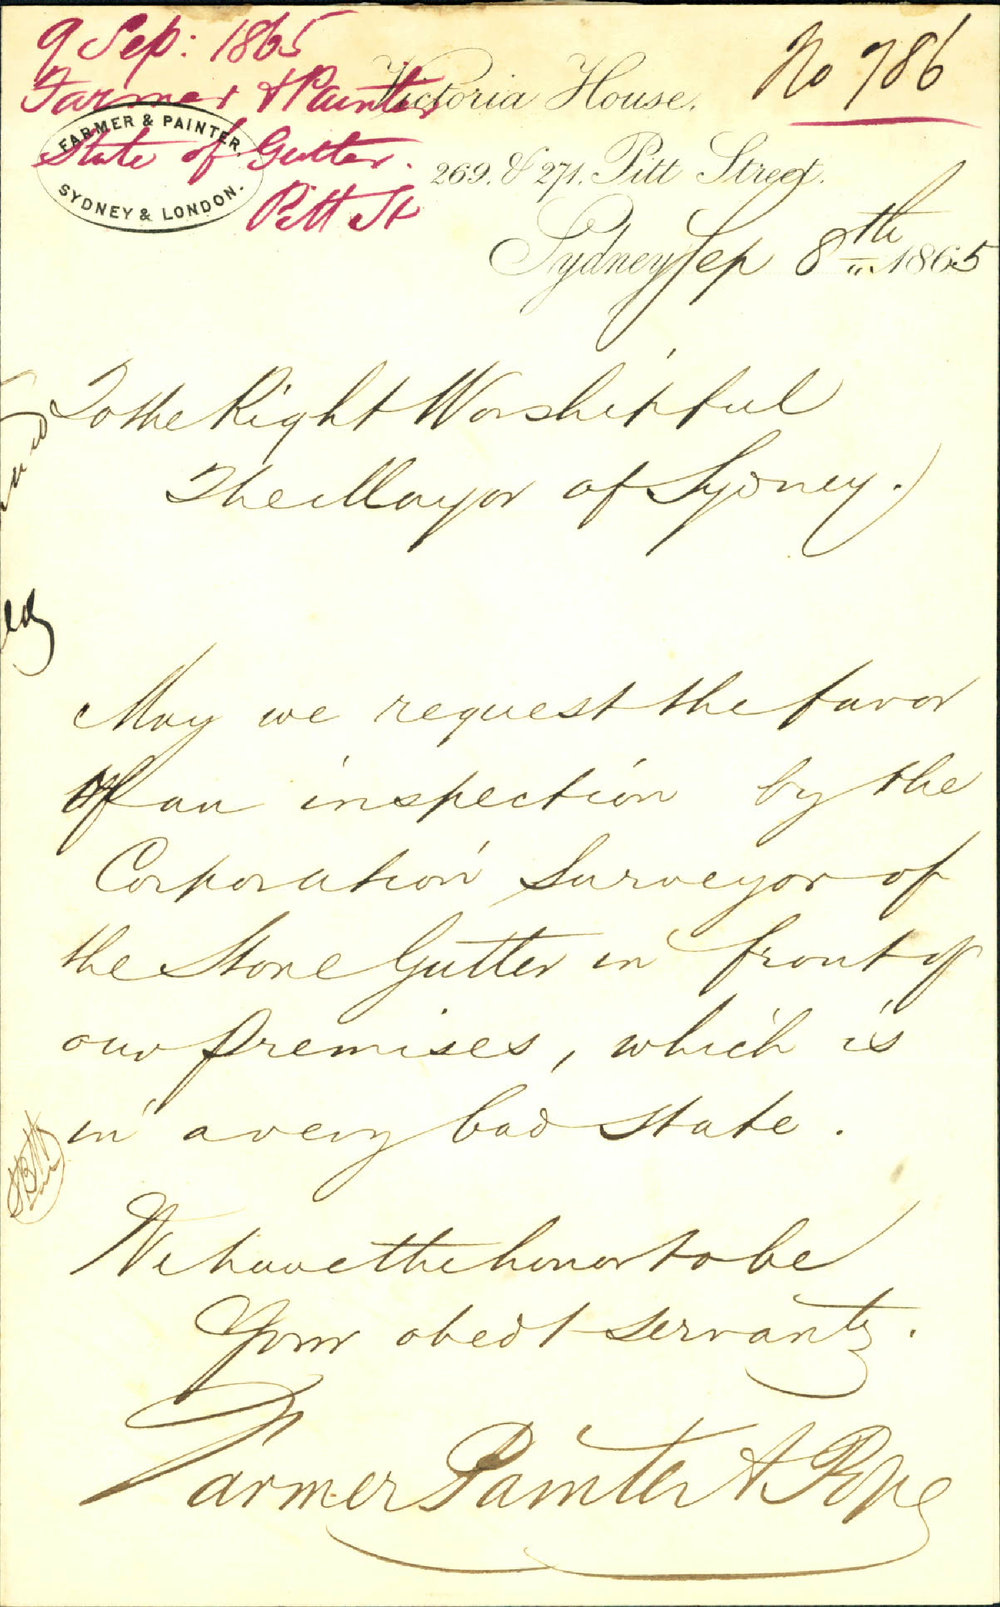 9 Sep: 1865
Farmer & Painter
State of Gutter.
Pitt St
No 786
FARMER & PAINTER.
SYDNEY & LONDON.
Victoria House.
269. & 271. Pitt Street.
Sydney Sep 8th 1865
To the Right Worshipful
The Mayor of Sydney.
May we request the favor
of an inspection by the
Corporation Surveyor of
the Stone Gutter in front of
our premises, which is
in a very bad state.
We have the honor to be
Your obedt servants.
Farmer Painter & Pope